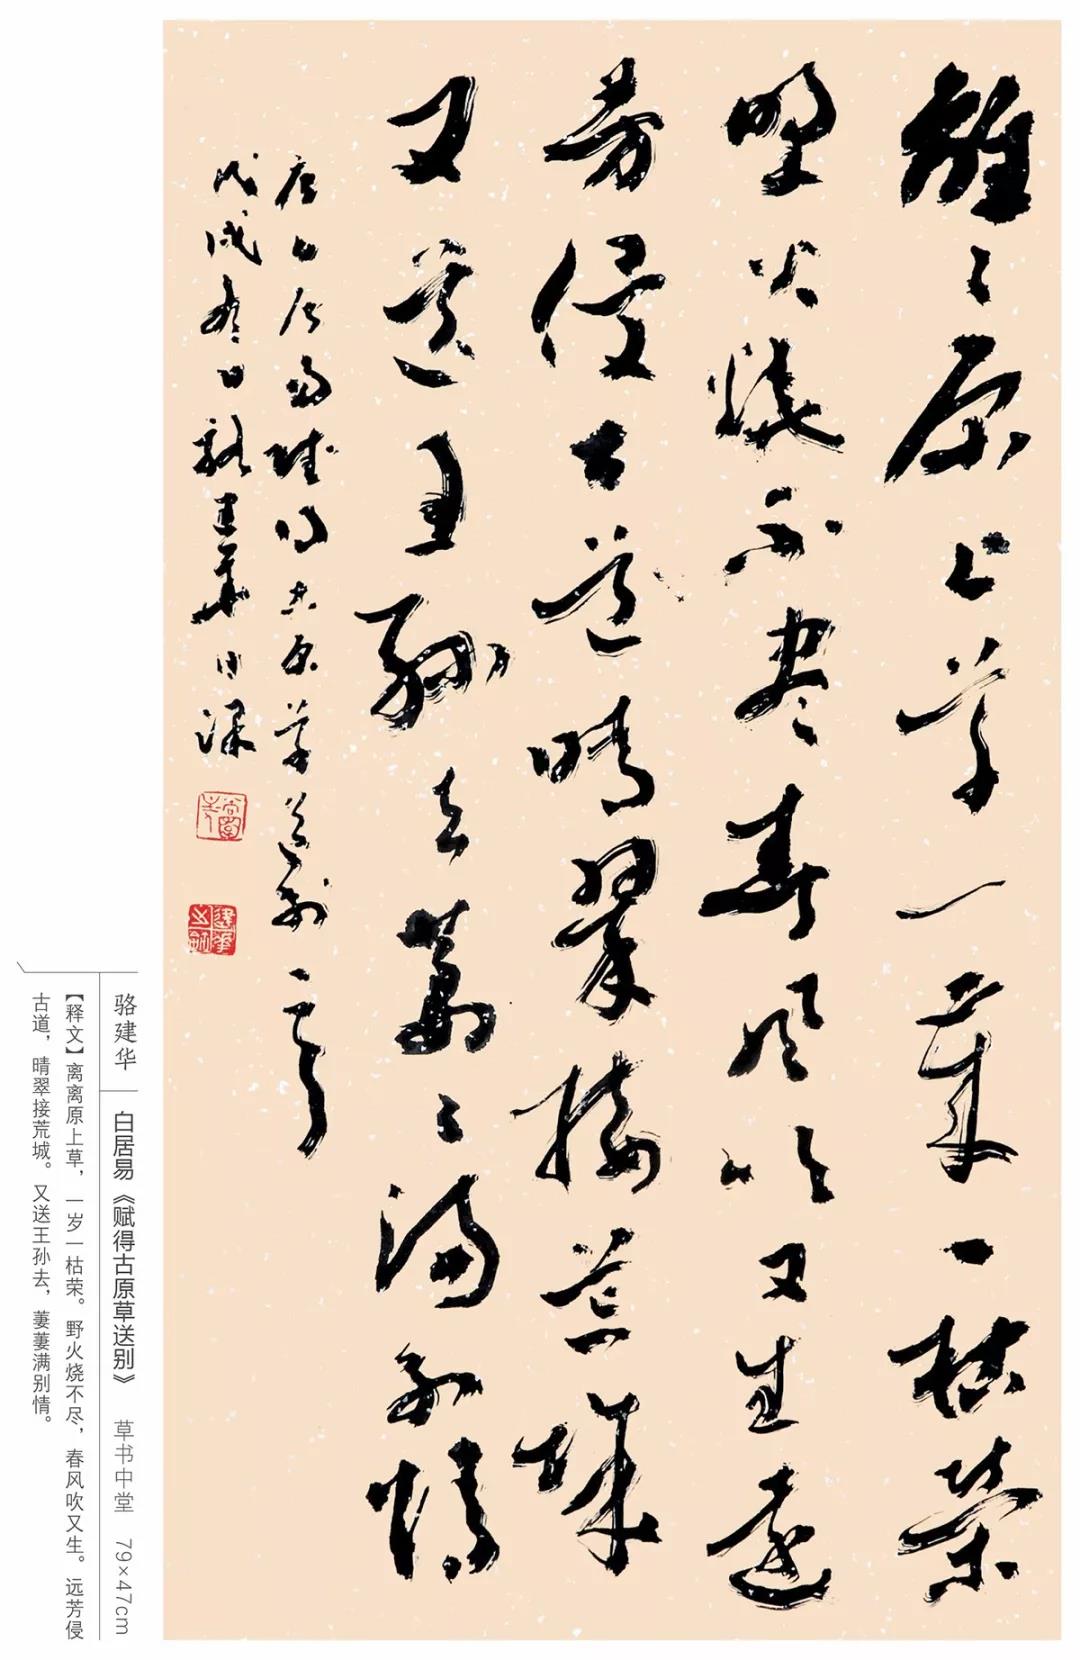 離々原上草一歲一枯榮
野火燒不尽春风吹又生遠
芳侵古道晴翠接荒城
又送王孙去萋々满别情
唐白居易赋得古原草送别一首
戊戌冬日骆建华书
骆建华 白居易《赋得古原草送别》 草书中堂 79×47cm
【释文】离离原上草，一岁一枯荣。野火烧不尽，春风吹又生。远芳侵
古道，晴翠接荒城。又送王孙去，萋萋满别情。